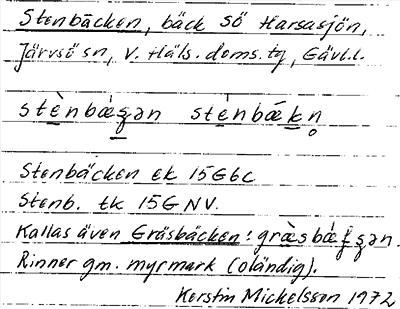 Stenbäcken, bäck SÖ Harsasjön,
Järvsö sn, V. Häls. doms. tg, Gävl.l.
stènbǽʂən stènbǽkn̥
Stenbäcken ek 15G6c
Stenb. tk 15G NV.
Kallas även Gräsbäcken: græ̀sbǽʂən.
Rinner gm. myrmark (oländig).
Kerstin Mickelsson 1972